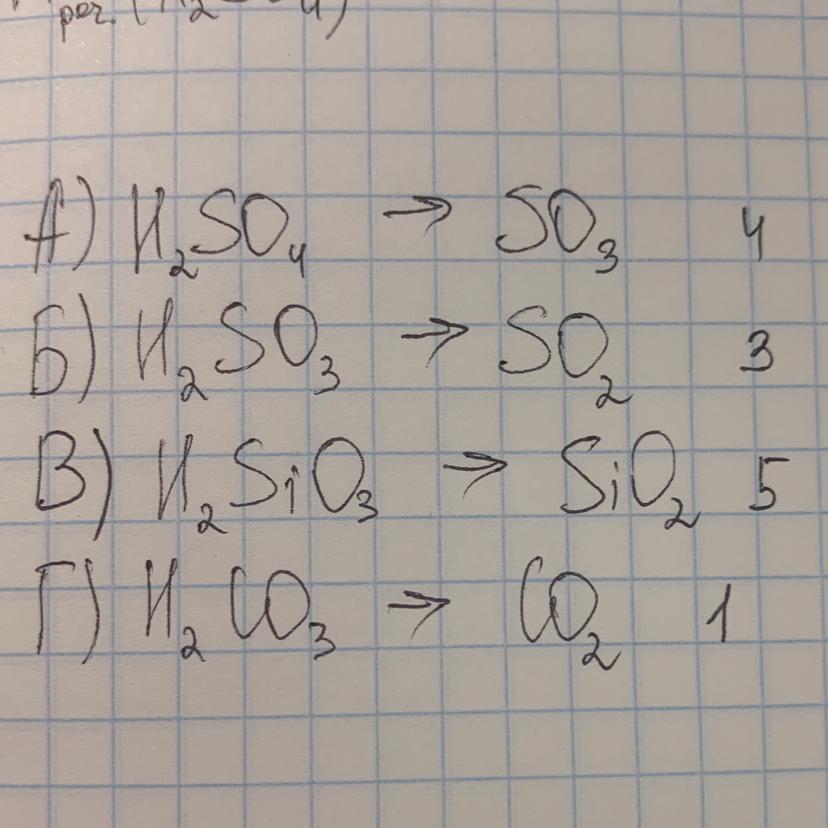 рег. (
А) H₂SO₄ → SO₃ 4
Б) H₂SO₃ → SO₂ 3
В) H₂SiO₃ → SiO₂ 5
Г) H₂CO₃ → CO₂ 1